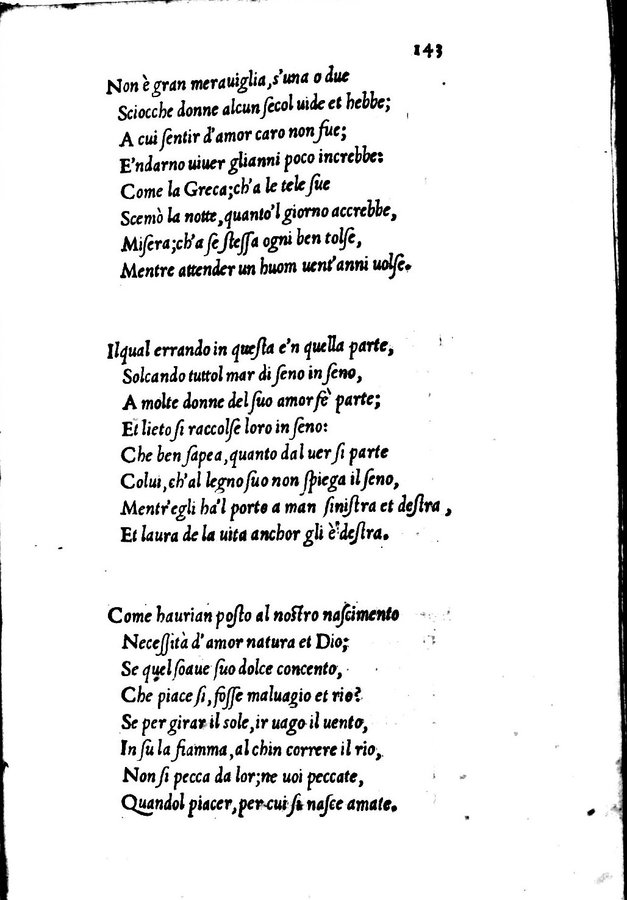 143
Non è gran merauiglia, s'una o due
Sciocche donne alcun ſecol uide et hebbe;
A cui ſentir d'amor caro non fue;
E'ndarno uiuer glianni poco increbbe:
Come la Greca; ch'a le tele ſue
Scemò la notte, quanto'l giorno accrebbe,
Miſera; ch'a ſe ſteſſa ogni ben tolſe,
Mentre attender un huom uent'anni uolſe.
Ilqual errando in queſta e'n quella parte,
Solcando tuttol mar di ſeno in ſeno,
A molte donne del ſuo amor fè parte;
Et lieto ſi raccolſe loro in ſeno:
Che ben ſapea, quanto dal uer ſi parte
Colui, ch'al legno ſuo non ſpiega il ſeno,
Mentr'egli ha'l porto a man ſiniſtra et deſtra,
Et laura de la uita anchor gli è deſtra.
Come haurian poſto al noſtro naſcimento
Neceſſità d'amor natura et Dio;
Se quel ſoaue ſuo dolce concento,
Che piace ſi, foſſe maluagio et rio?
Se per girar il sole, ir uago il uento,
In ſu la fiamma, al chin correre il rio,
Non ſi pecca da lor; ne uoi peccate,
Quandol piacer, per cui ſi naſce amate.